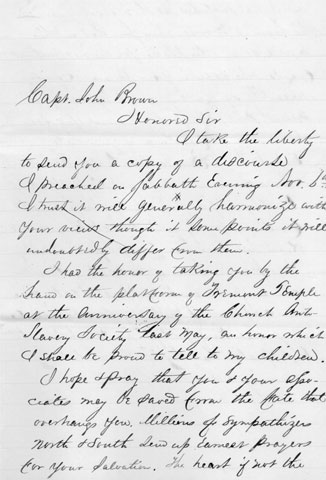 Capt. John Brown
Honored Sir
I take the liberty
to send you a copy of a discourse
I preached on Sabbath Evening Nov. 6th
I trust it will generally harmonize with
your views though it some points it will
undoubtedly differ from them.
I had the honor of taking you by the
hand on the platform of Tremont Temple
at the anniversary of the Church Anti-
Slavery Society last May, an honor which
I shall be proud to tell to my children.
I hope & pray that you & your asso-
ciates may be saved from the fate that
overhangs you. Millions of sympathizers
North & South send up earnest prayers
for your salvation. The heart if not the